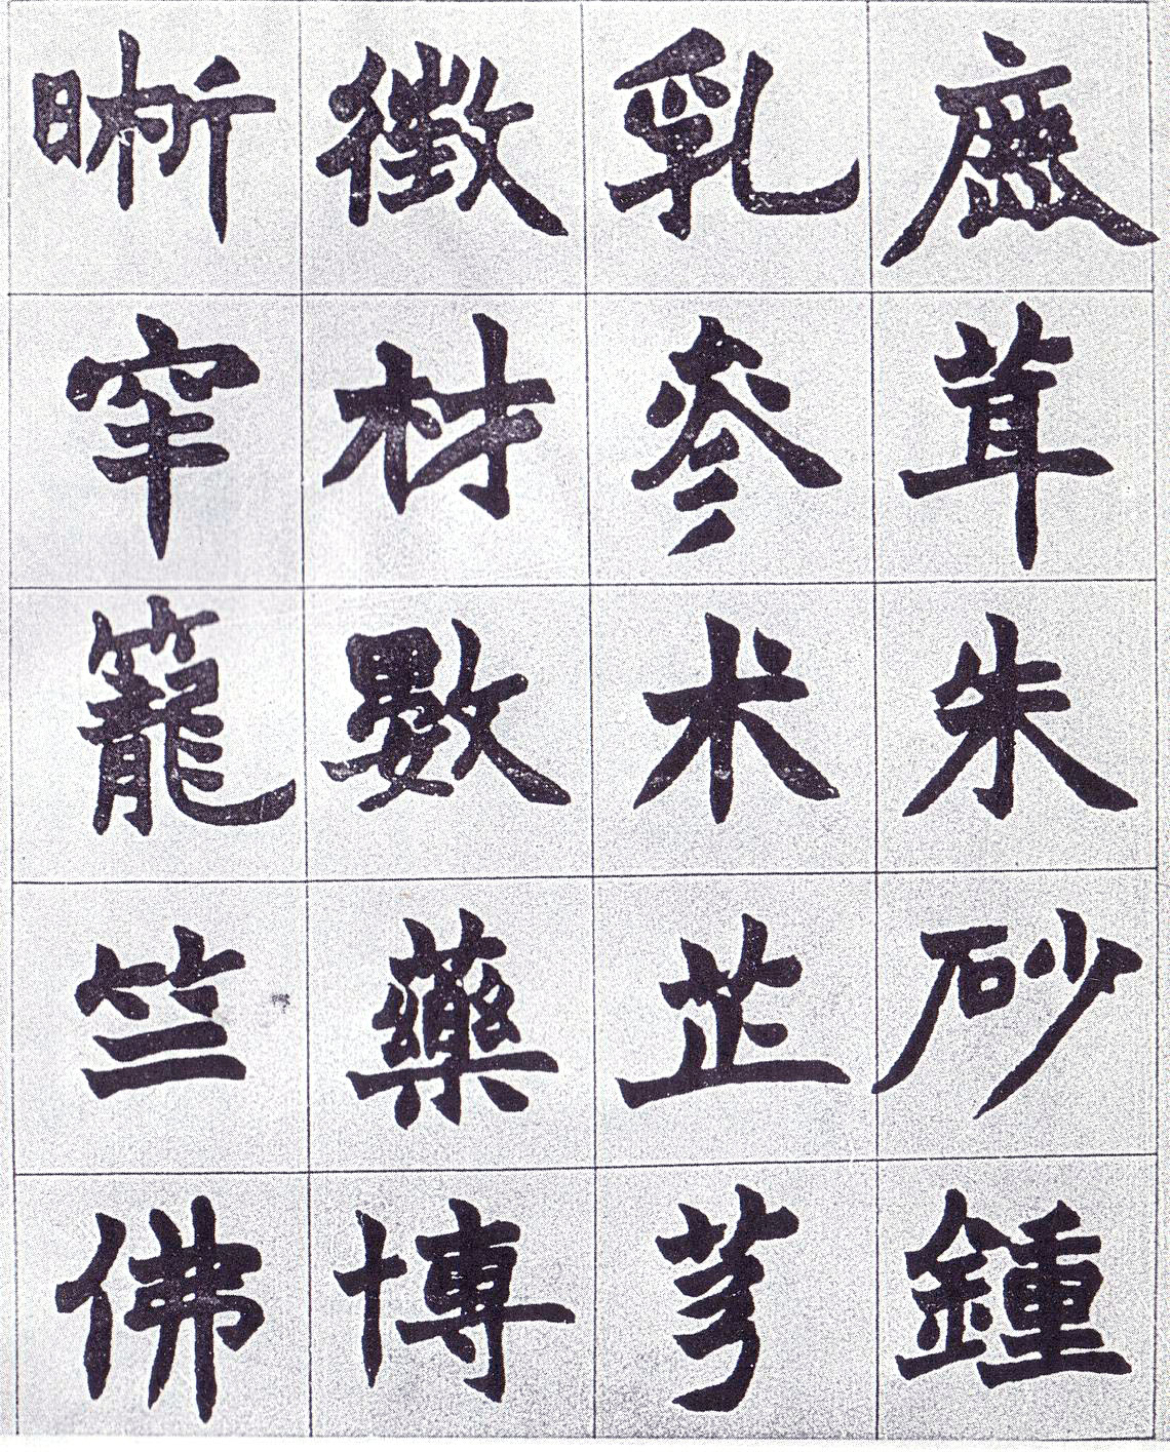 鹿茸朱砂鍾
乳參术芷芎
徵材數藥博
晰罕籠竺佛